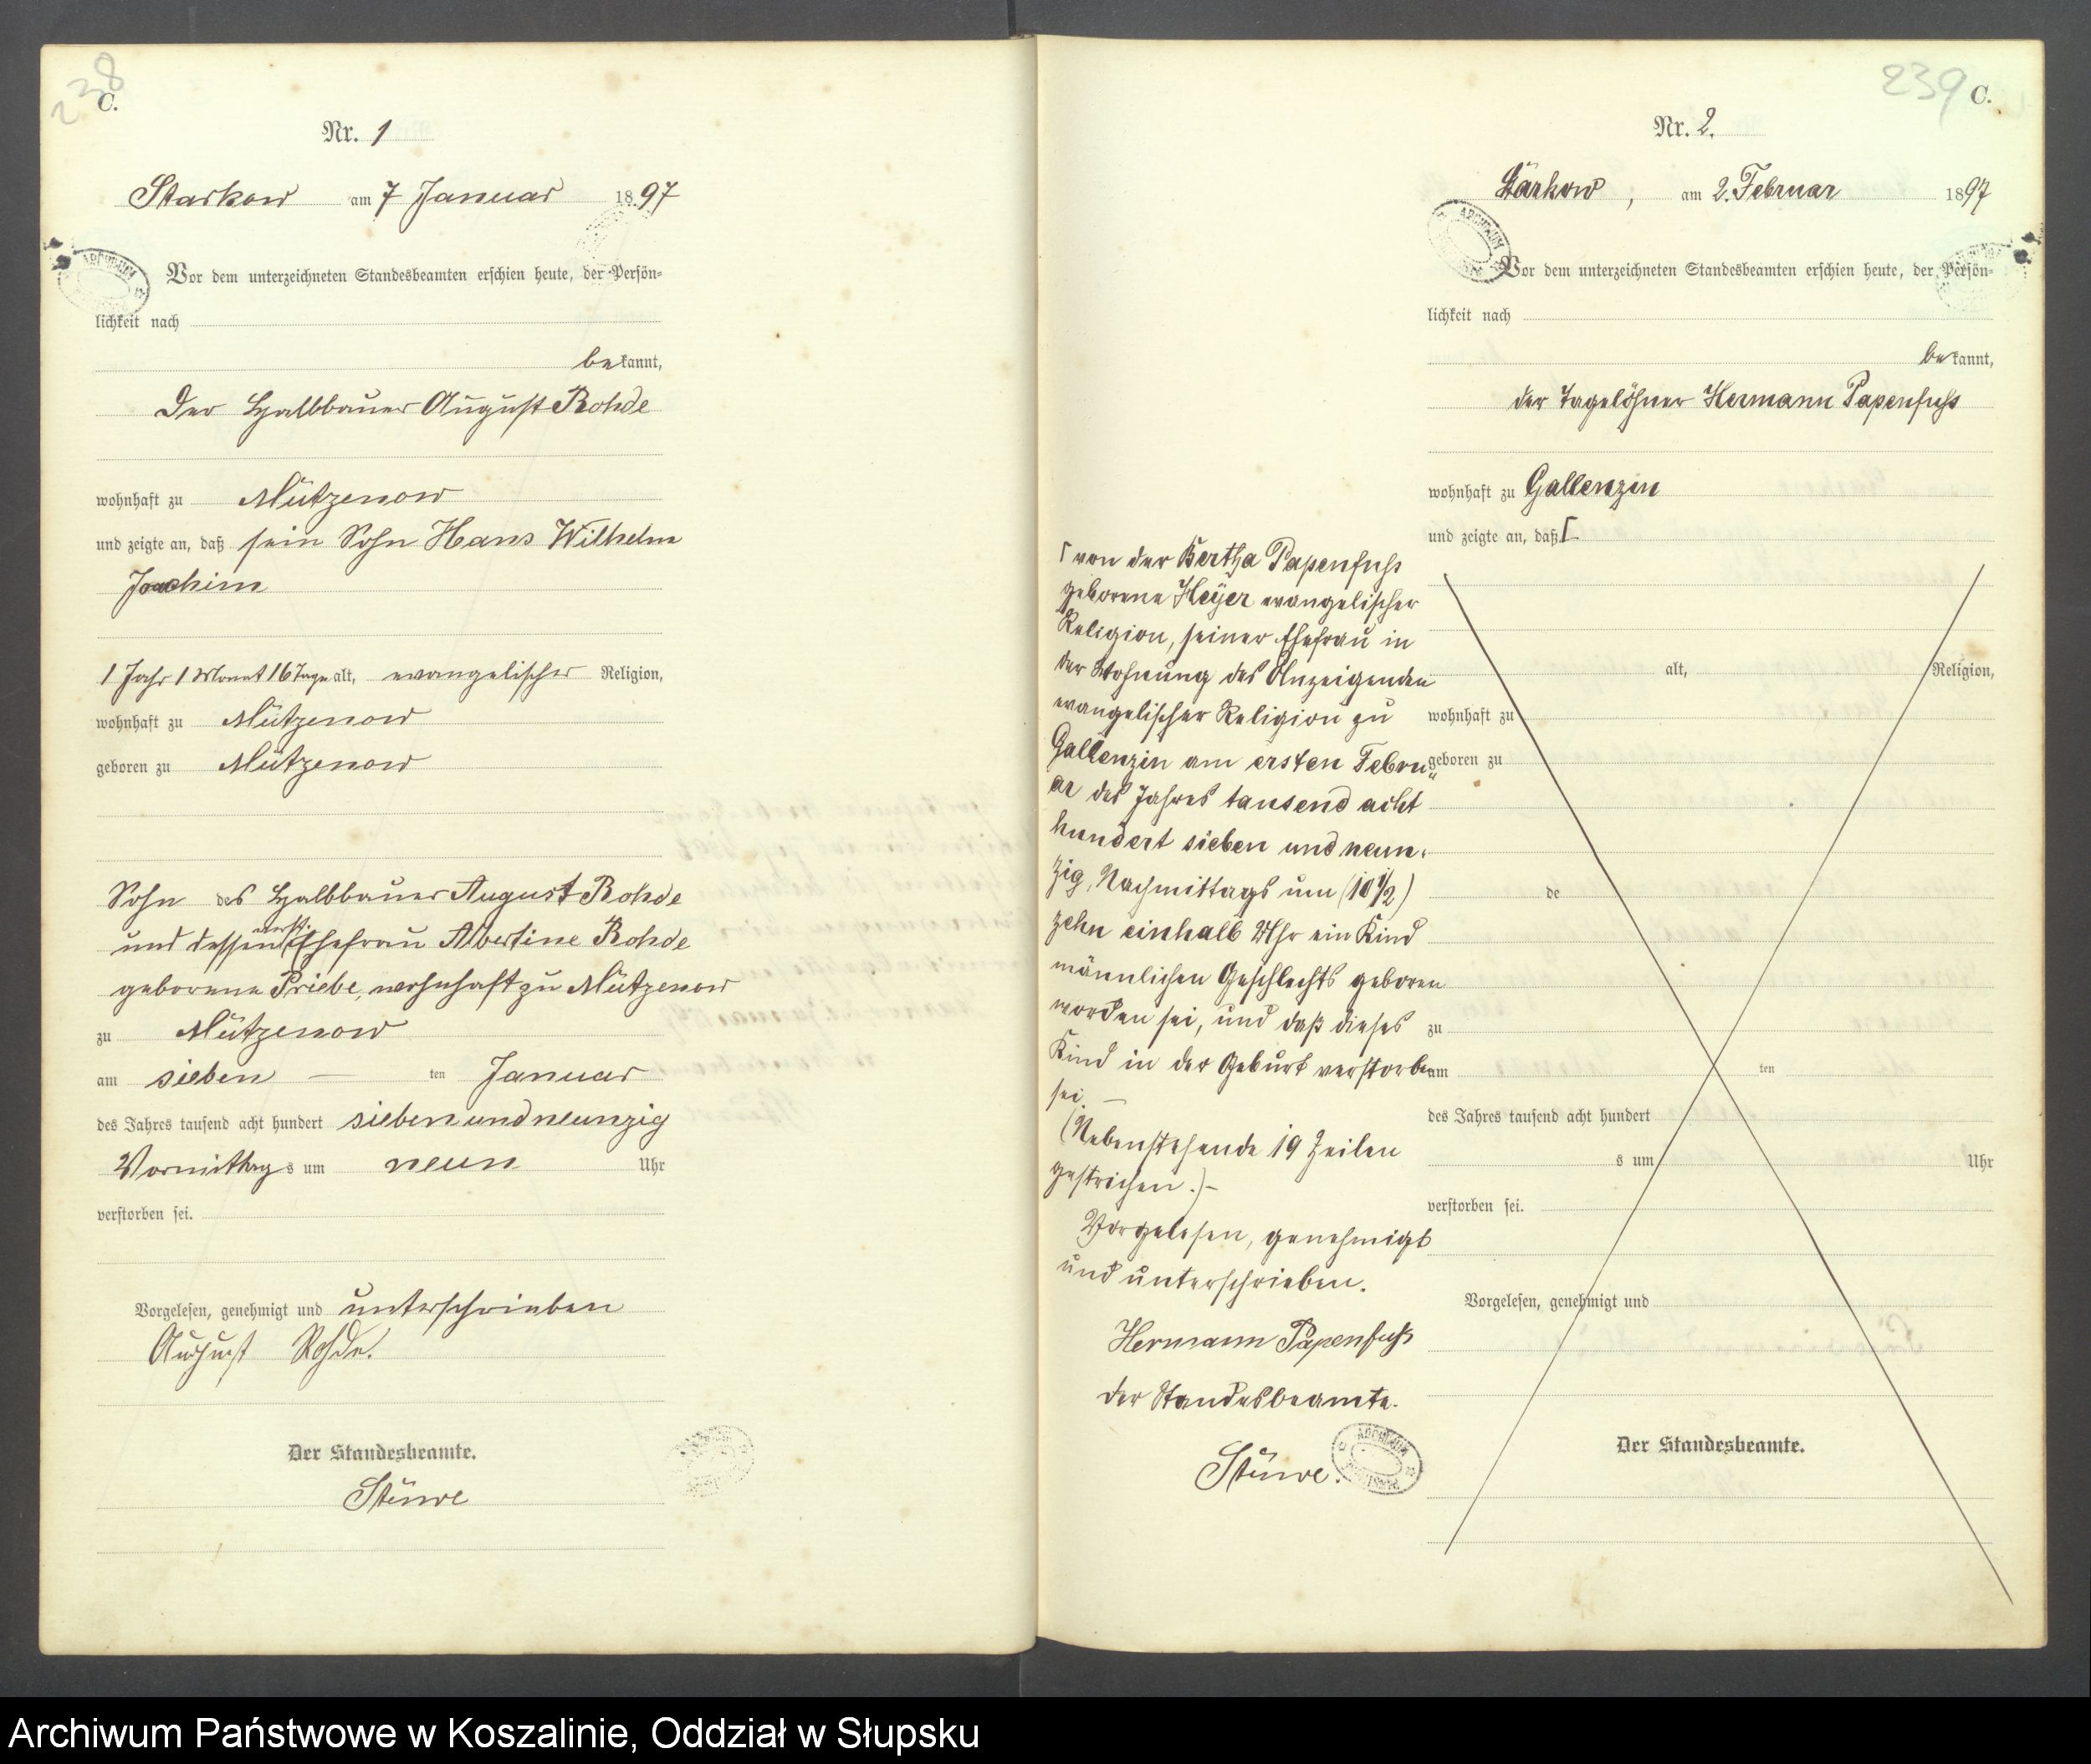 238
C.
Nr. 1
Starkow am 7 Januar 1897
Vor dem unterzeichneten Standesbeamten erschien heute, der Persön-
lichkeit nach
bekannt,
Der Halbbauer August Rohde
wohnhaft zu Mützenow
und zeigte an, daß sein Sohn Hans Wilhelm
Joachim
1 Jahr 1 Monat 16 Tage alt, evangelischer Religion,
wohnhaft zu Mützenow
geboren zu Mützenow
Sohn des Halbbauer August Rohde
und dessen Ehefrau Albertine Rohde
geborene Priebe, wohnhaft zu Mützenow
zu Mützenow
am sieben — ten Januar
des Jahres tausend acht hundert sieben und neunzig
Vormittags um neun Uhr
verstorben sei.
Vorgelesen, genehmigt und unterschrieben
August Rohde.
Der Standesbeamte.
Stüwe
239 C.
Nr. 2.
am 2. Februar 1897
ARCHIWUM
Vor dem unterzeichneten Standesbeamten erschien heute, der Persön-
lichkeit nach
bekannt,
der Tagelöhner Hermann Papenfuss
wohnhaft zu Gallenzin
und zeigte an, daß ⌈
⌈ von der Bertha Papenfuss
geborene Heyer evangelischer
Religion, seiner Ehefrau in
der Wohnung des Anzeigenden
evangelischer Religion zu
Gallenzin am ersten Febru„
ar des Jahres tausend acht
hundert sieben und neun„
zig, Nachmittags um (10 1/2)
zehn einhalb Uhr ein Kind
männlichen Geschlechts geboren
worden sei, und daß dieses
Kind in der Geburt verstorben
sei. —
(Nebenstehende 19 Zeilen
gestrichen.) –
Vorgelesen, genehmigt
und unterschrieben.
Hermann Papenfuss
der Standesbeamte.
Stüwe.
alt, Religion,
wohnhaft zu
geboren zu
de
zu
am ten
des Jahres tausend acht hundert
s um Uhr
verstorben sei.
Vorgelesen, genehmigt und
Der Standesbeamte.
Archiwum Państwowe w Koszalinie, Oddział w Słupsku